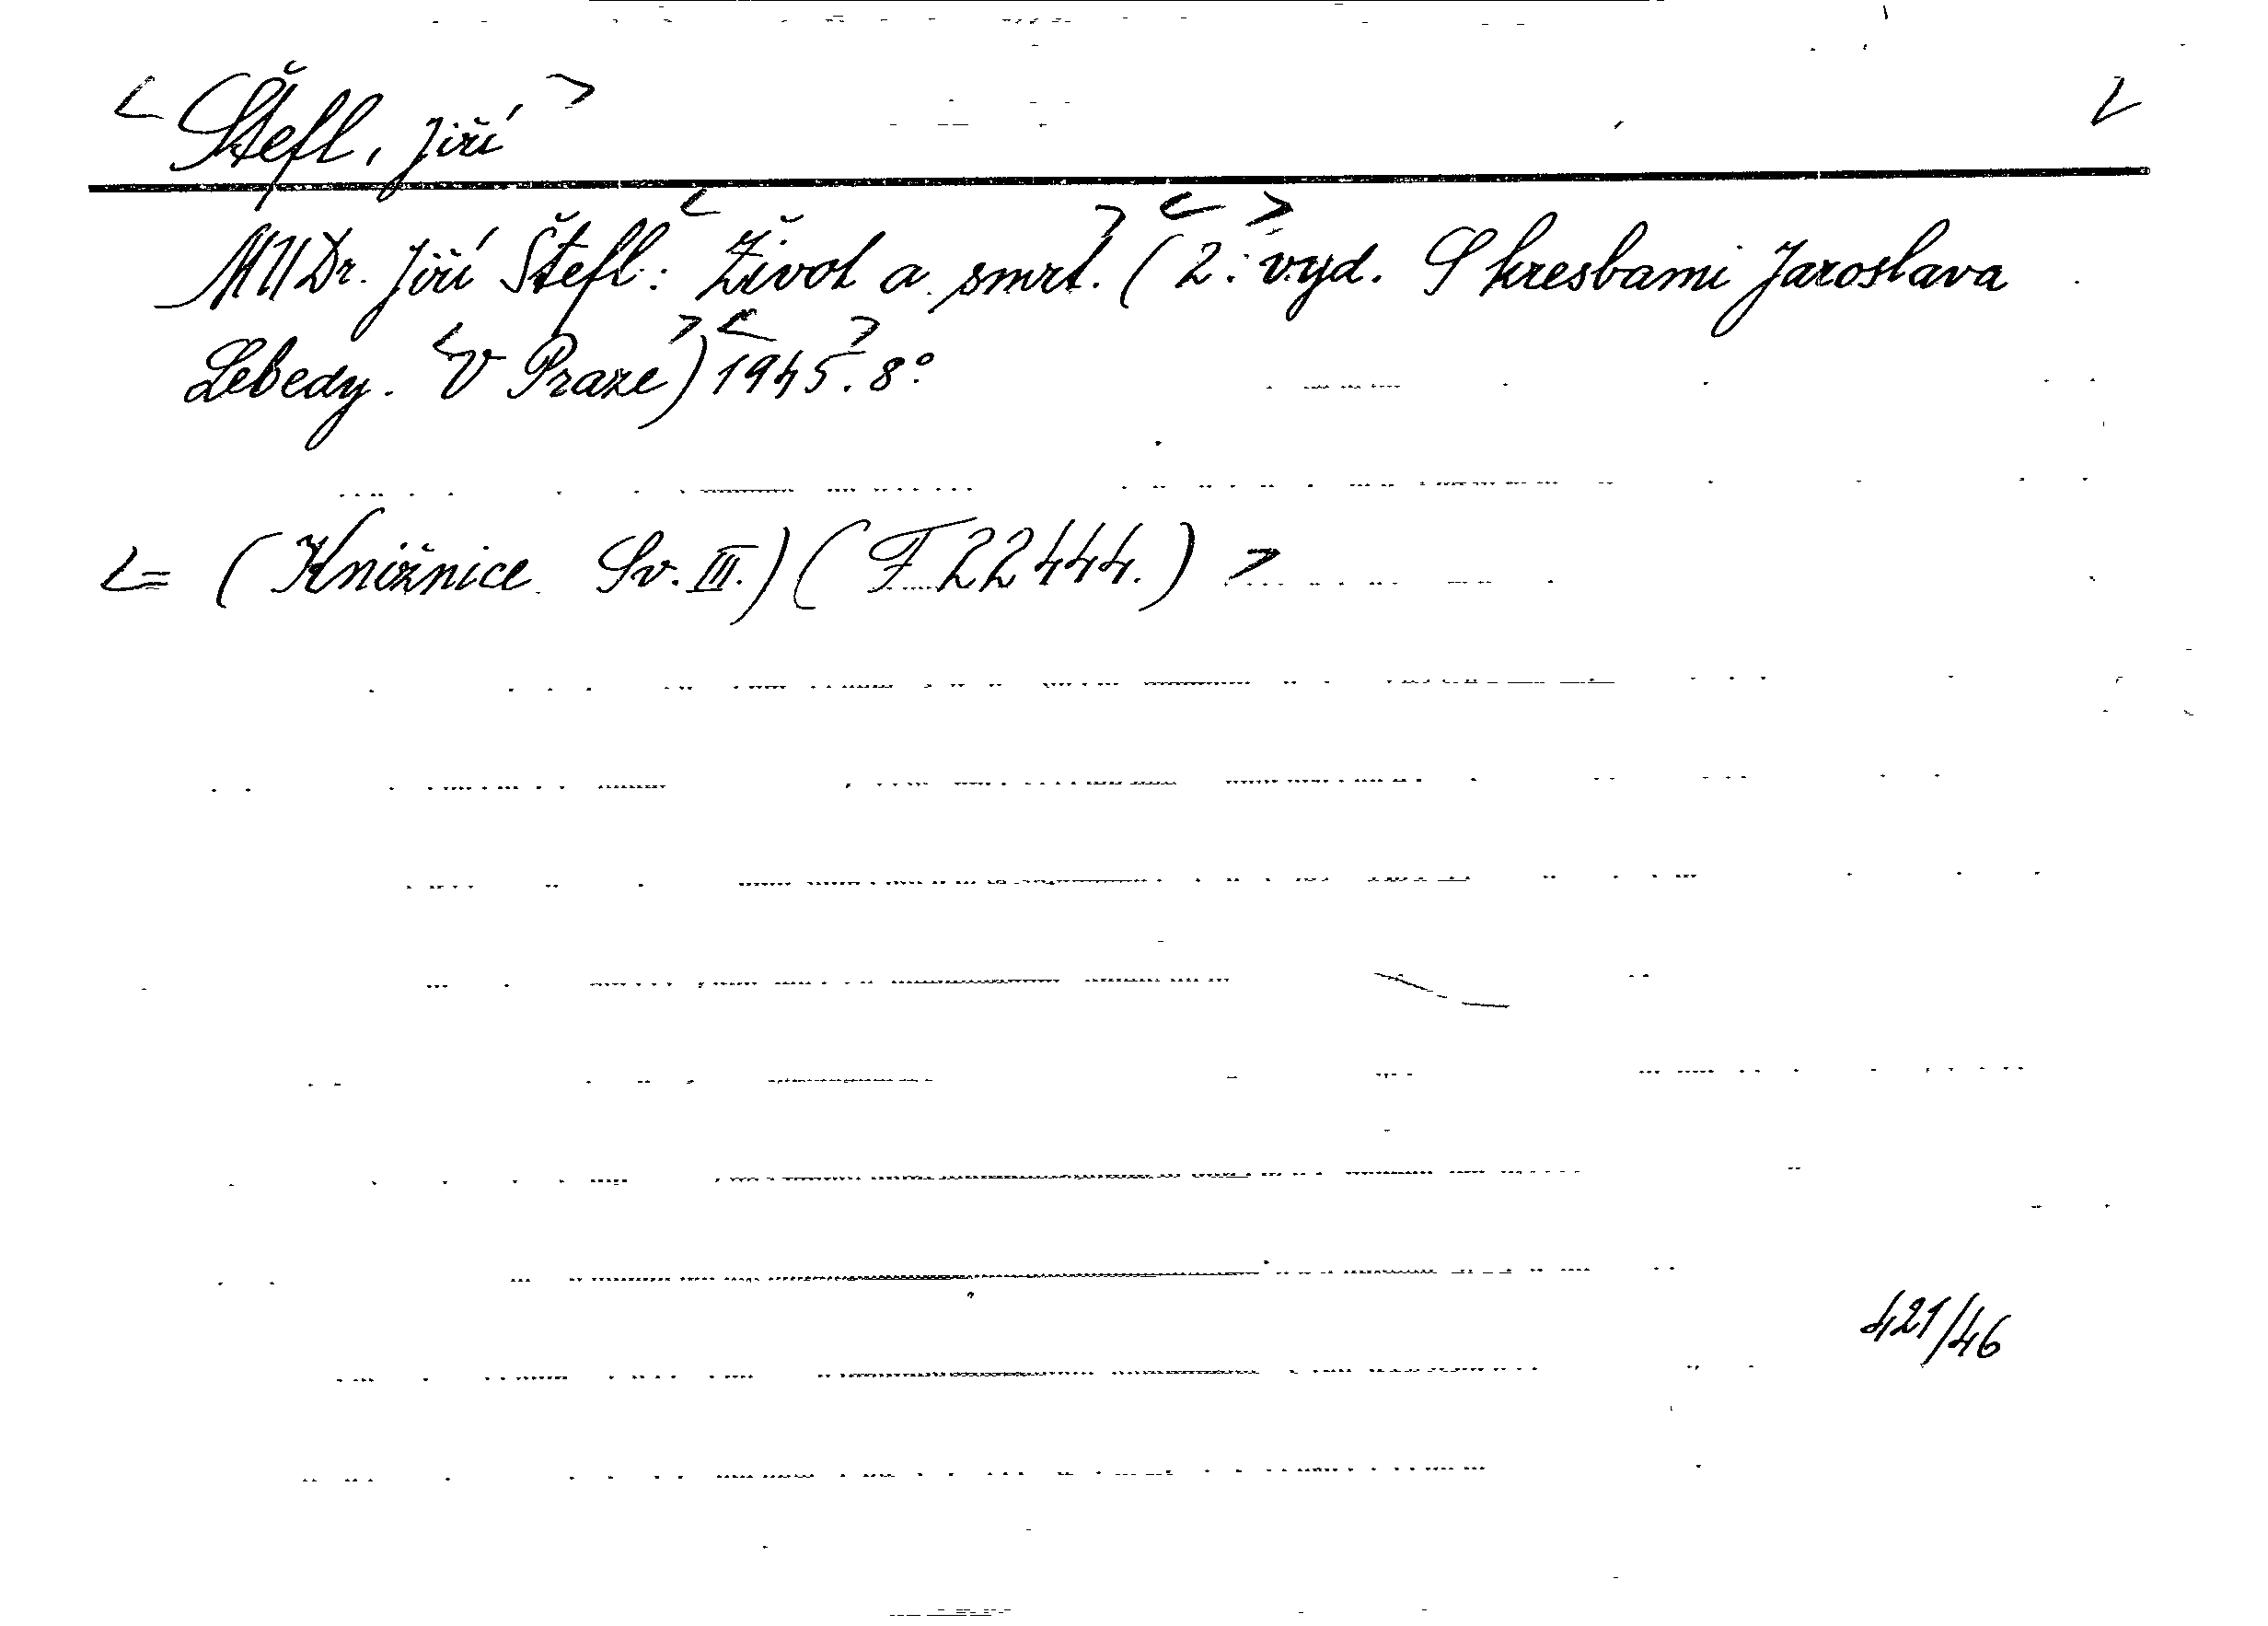 Štefl, Jiří
MUDr. Jiří Štefl: Život a smrt. (2. vyd. S kresbami Jaroslava
Lebedy. V Praze) 1945. 8°
= (Knižnice Sv. III.) (F 22444.)
421/46